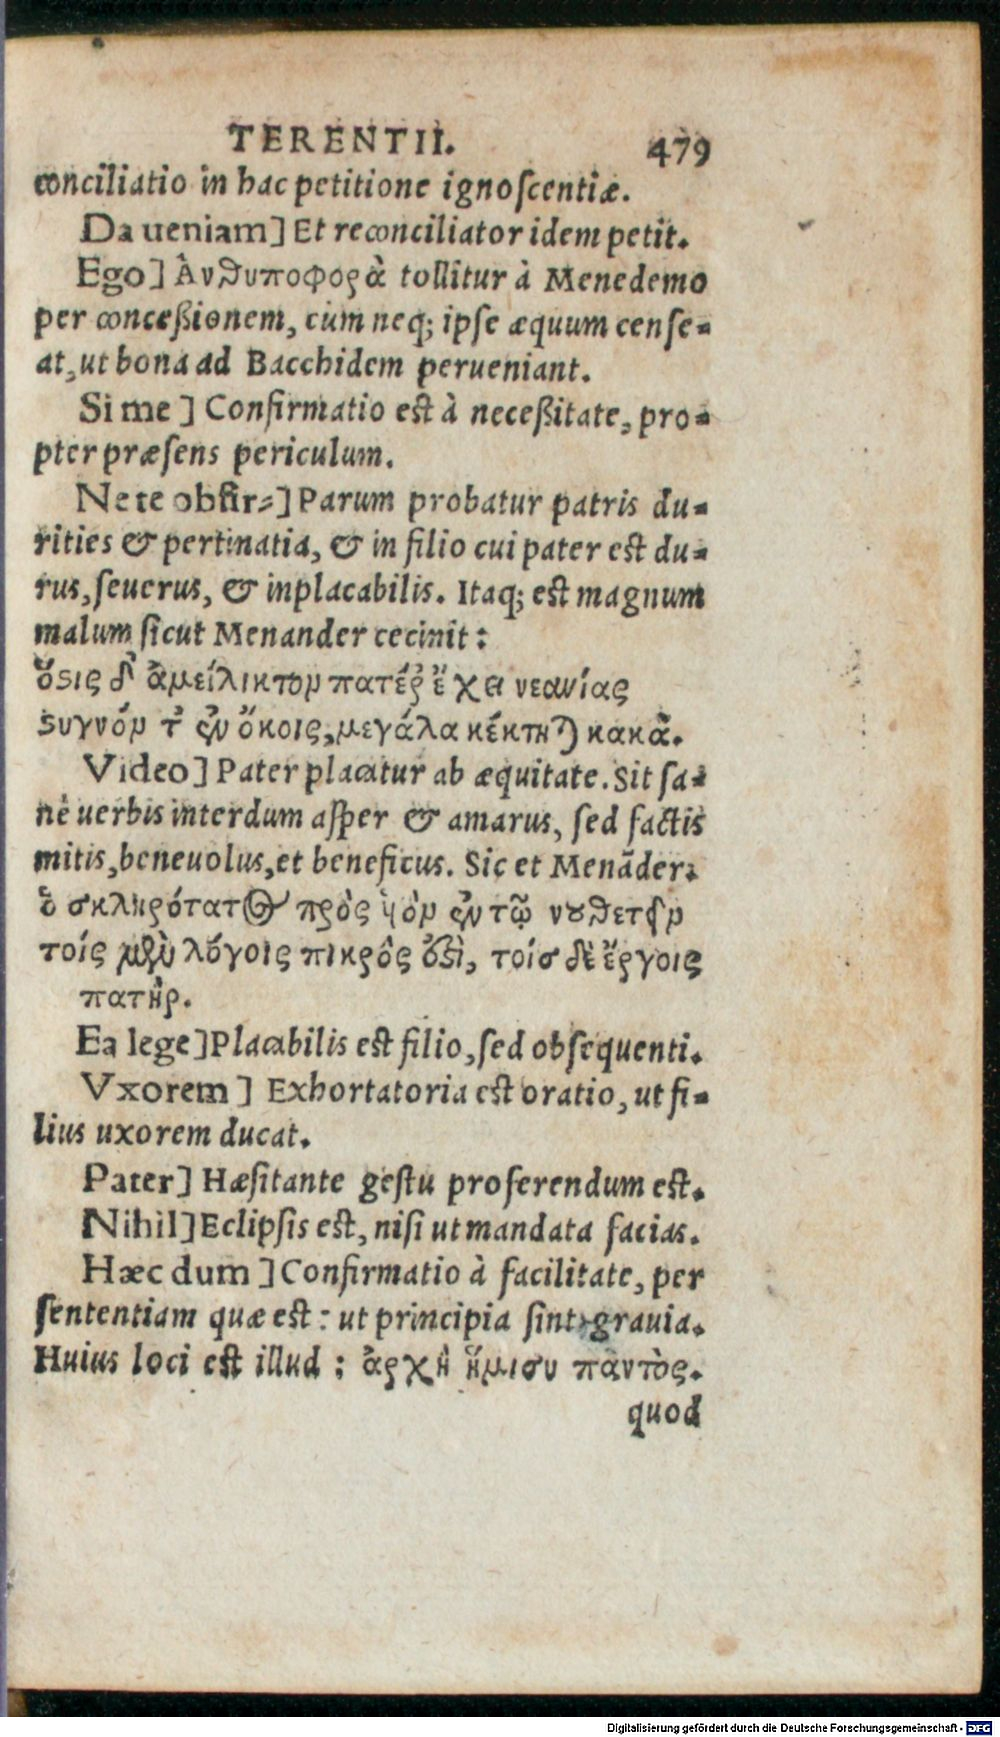 TERENTII. 479
conciliatio in hac petitione ignoscentiæ.
Da ueniam] Et reconciliator idem petit.
Ego] Ἀνθυποφορὰ tollitur à Menedemo
per conceßionem, cùm neq; ipse æquum cense-
at, ut bona ad Bacchidem perueniant.
Si me] Confirmatio est à neceßitate, pro-
pter præsens periculum.
Ne te obfir-] Parum probatur patris du-
rities & pertinatia, & in filio cui pater est du-
rus, seuerus, & inplacabilis. Itaq; est magnum
malum sicut Menander cecinit:
ὅστις δ' ἀμείλικτον πατέρ' ἔχει νεανίας
στυγνόν τ' ἐν ὄκοις, μεγάλα κέκτηται κακά.
Video] Pater placatur ab æquitate. Sit sa-
nè uerbis interdum asper & amarus, sed factis
mitis, beneuolus, et beneficus. Sic et Menāder.
ὁ σκληρότατος πρὸς ὑὸν ἐν τῷ νουθετεῖν
τοῖς μὲν λόγοις πικρός ἐστι, τοῖσ δὲ ἔργοις
πατήρ.
Ea lege] Placabilis est filio, sed obsequenti.
Vxorem] Exhortatoria est oratio, ut fi-
lius uxorem ducat.
Pater] Hæsitante gestu proferendum est.
Nihil] Eclipsis est, nisi ut mandata facias.
Hæc dum] Confirmatio à facilitate, per
sententiam quæ est: ut principia sint grauia.
Huius loci est illud: ἀρχὴ ἥμισυ παντὸς.
quod
Digitalisierung gefördert durch die Deutsche Forschungsgemeinschaft - DFG